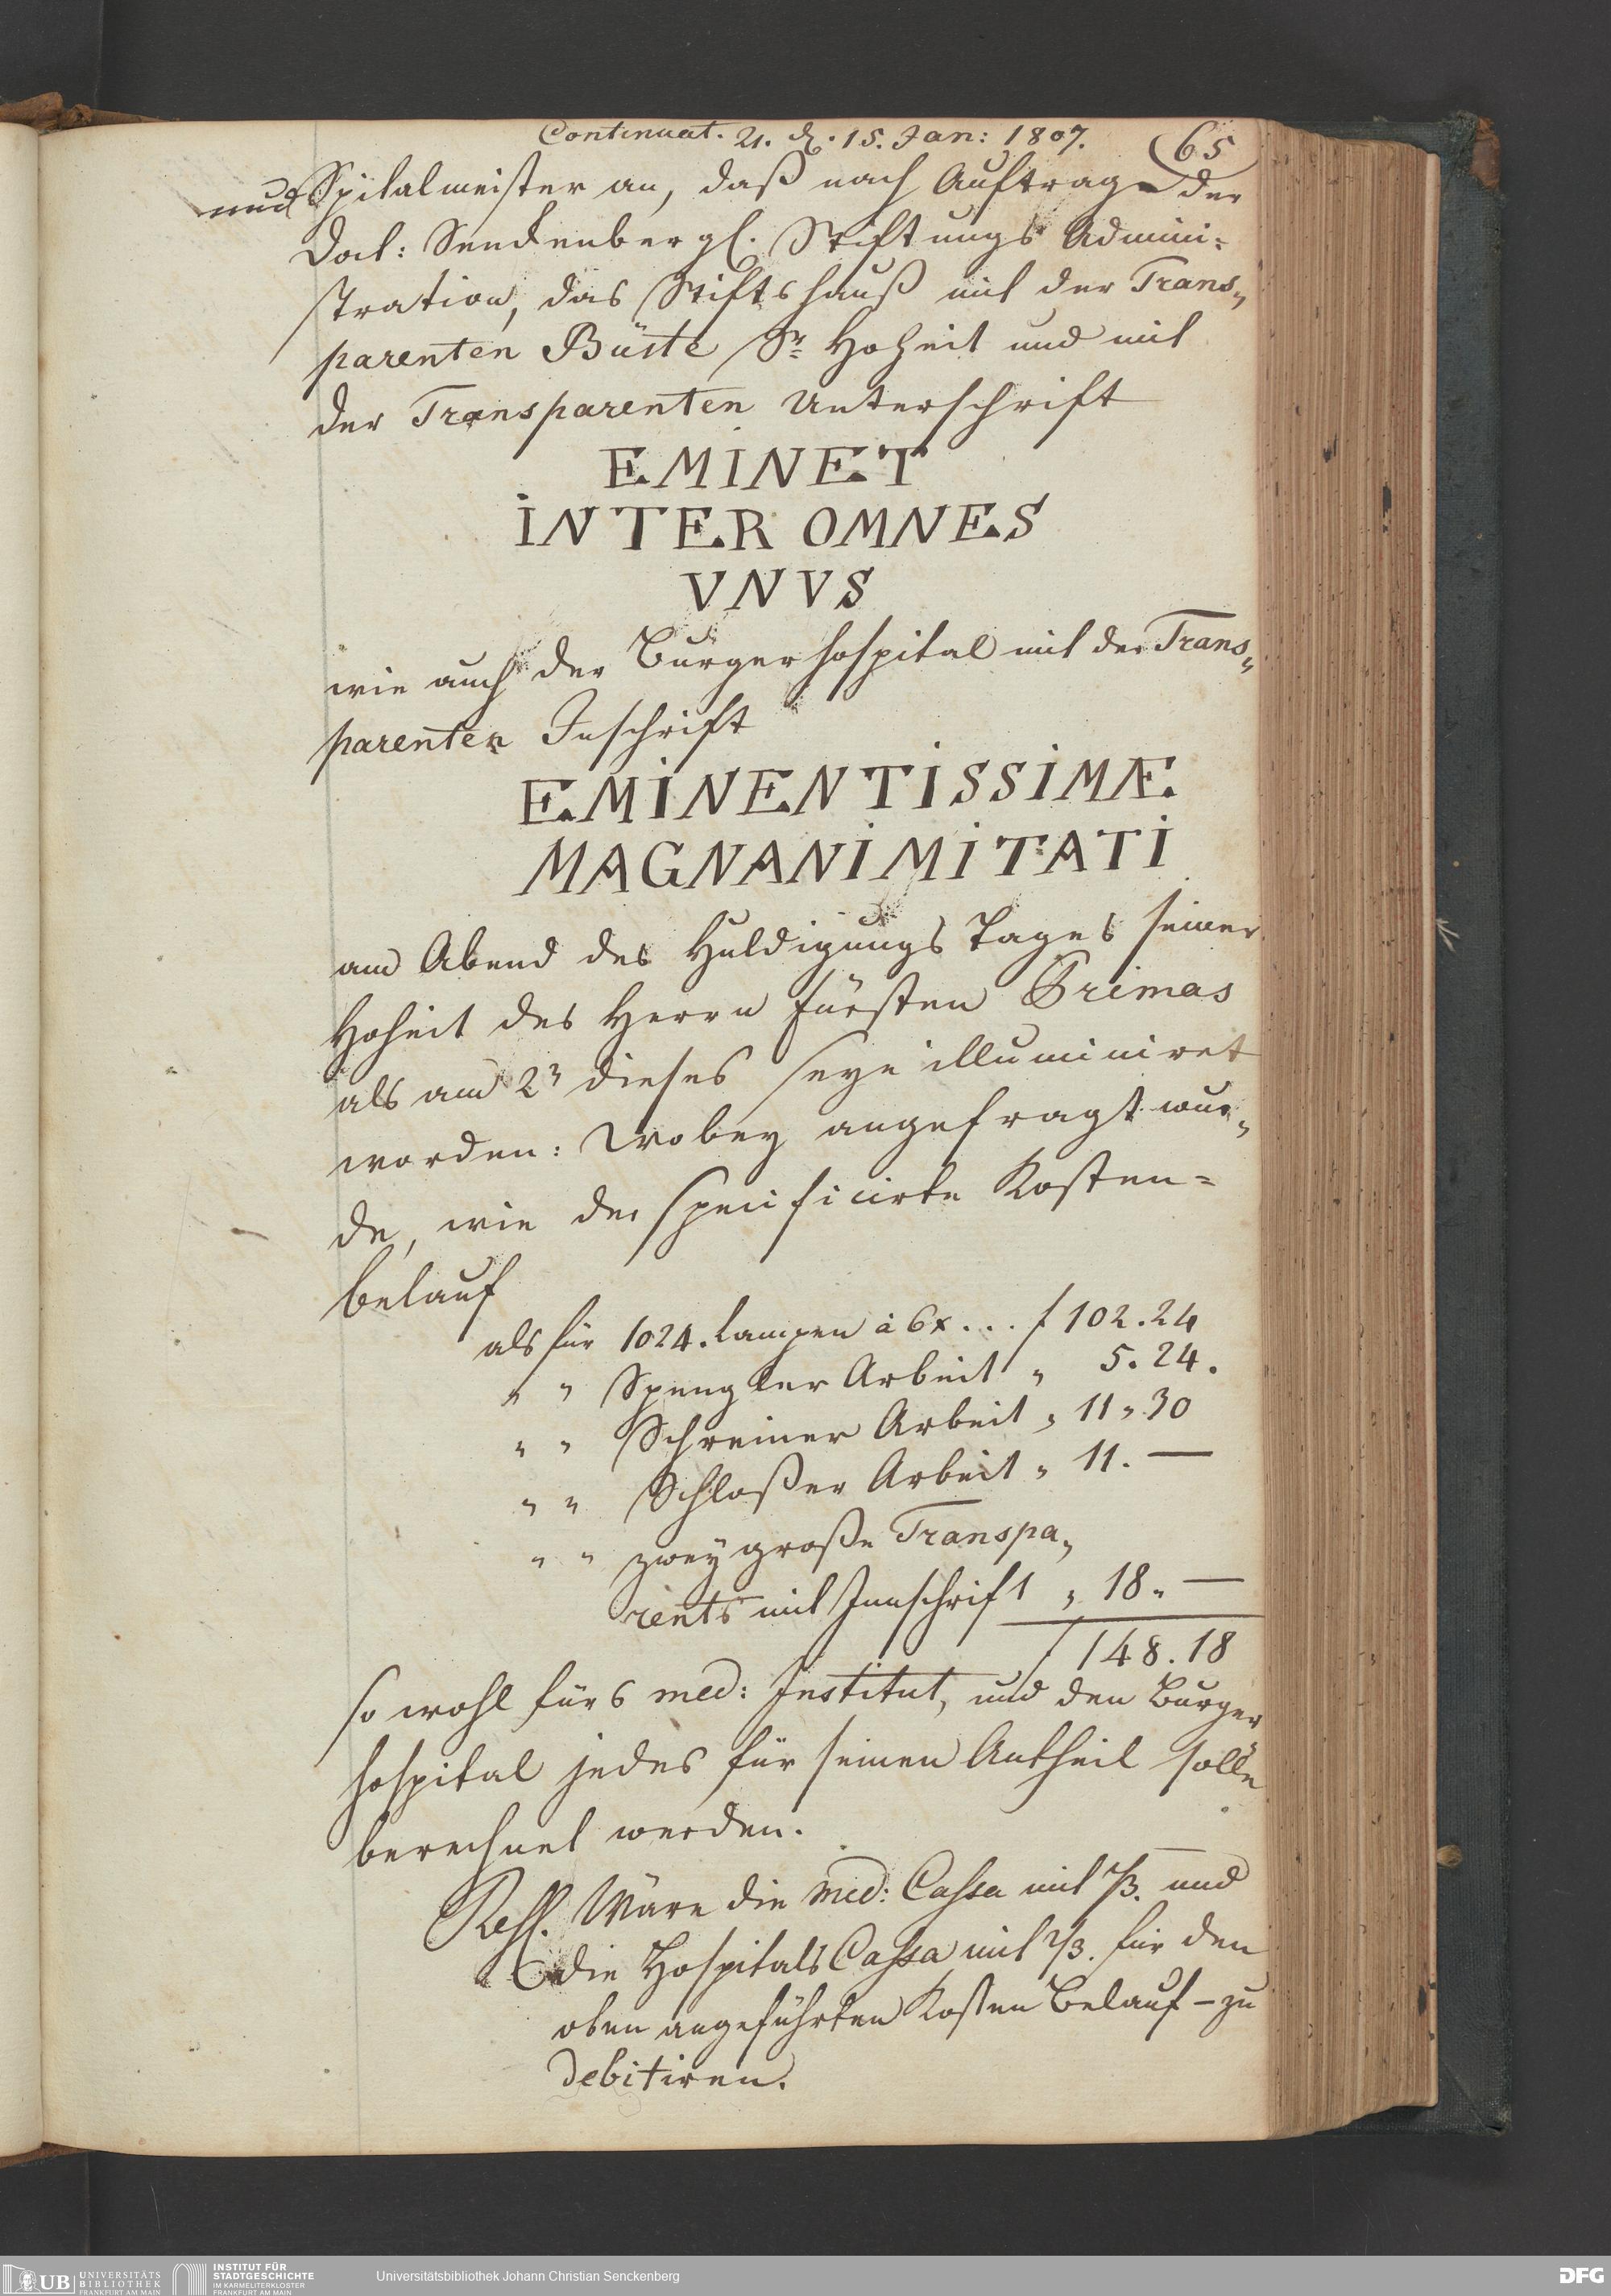 Continuat. 21. d. 15. Jan: 1807.
65
und Spitalmeister an, daß nach Auftrage der
Doct: Senckenbergl. Stiftungs Admini=
stration, das Stiftshauß mit der Trans„
parenten Büste Sr Hoheit und mit
der Transparenten Unterschrift
EMINET
INTER OMNES
VNVS
wie auch der Burgerhospital mit der Trans„
parenten Inschrift
EMINENTISSIMÆ
MAGNANIMITATI
am Abend des Huldigungs Tages seiner
Hoheit des Herrn Fürsten Primas
als am 2n dieses seye illuminiret
worden: Wobey angefragt wur„
de, wie der specificirte Kosten=
belauf
als für 1024. Lampen à 6x... f 102.24
„ „ Spengler Arbeit „ 5.24.
„ „ Schreiner Arbeit „ 11„30
„ „ Schloßer Arbeit „ 11. —
„ „ zwey große Transpa„
rents mit Innschrift „ 18„ —
f 148.18
so wohl fürs med: Institut, und den Burger
hospital jedes für seinen Antheil solle
berechnet werden.
Resl. Wäre die med: Cassa mit 1/3. und
die Hospitals Cassa mit 2/3. für den
oben angeführten Kosten Belauf – zu
debitiren.
UB UNIVERSITÄTS
BIBLIOTHEK
FRANKFURT AM MAIN
INSTITUT FÜR
STADTGESCHICHTE
IM KARMELITERKLOSTER
FRANKFURT AM MAIN
Universitätsbibliothek Johann Christian Senckenberg
DFG